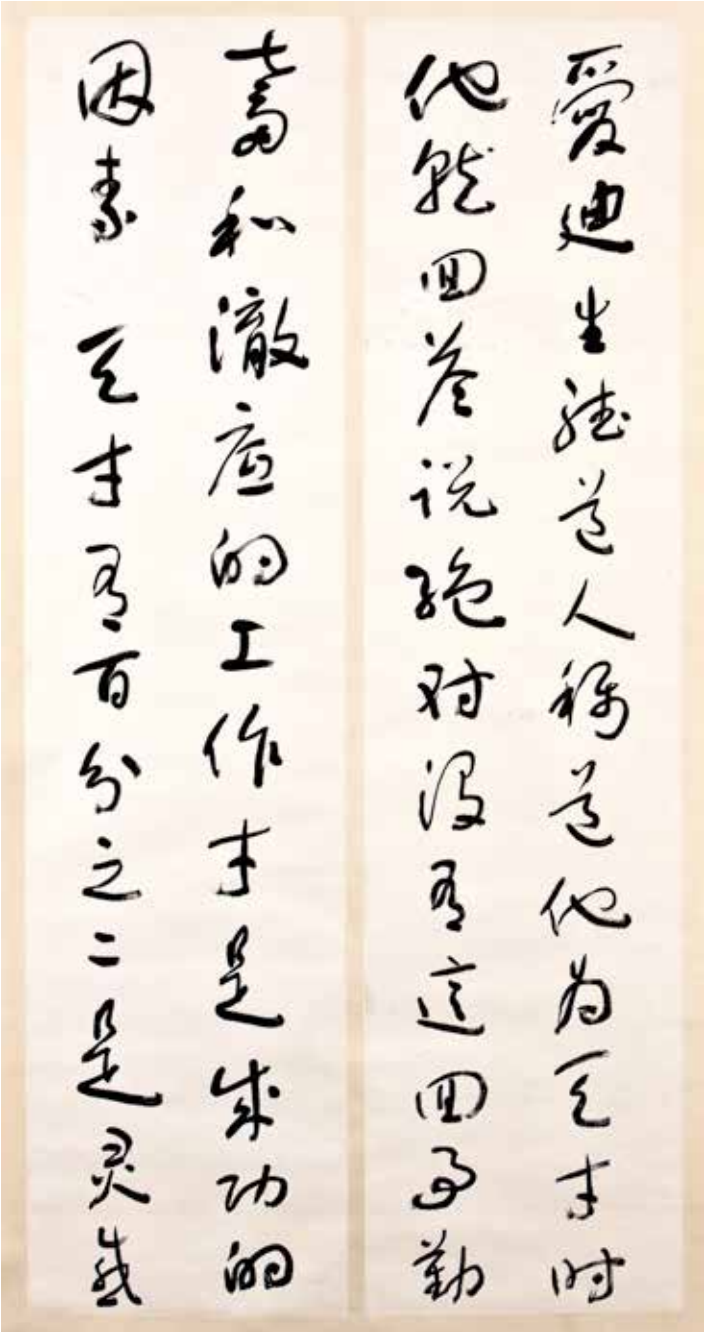 愛迪生聽道人称道他为天才时
他就回答说绝对没有這回事勤
奮和澈底的工作才是成功的
因素 天才有百分之二是灵感